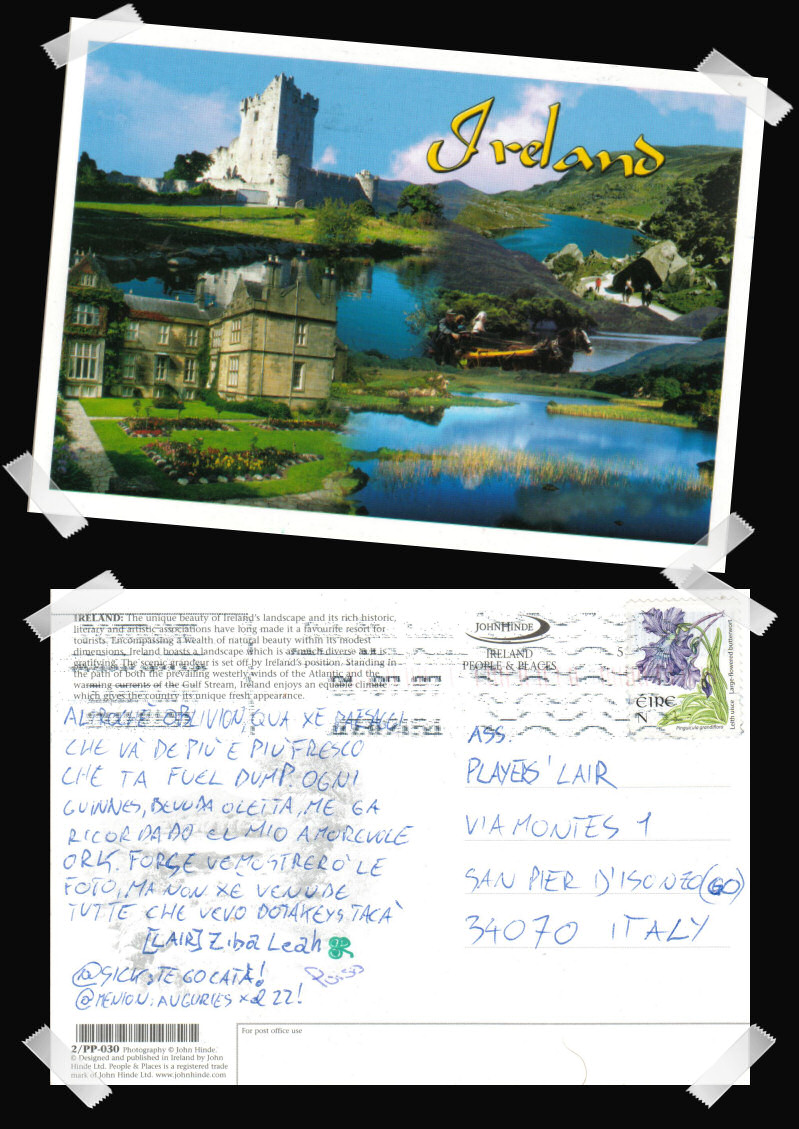 Ireland
IRELAND: The unique beauty of Ireland's landscape and its rich historic,
literary and artistic associations have long made it a favourite resort for
tourists. Encompassing a wealth of natural beauty within its modest
dimensions, Ireland boasts a landscape which is as much diverse as it is
gratifying. The scenic grandeur is set off by Ireland's position. Standing in
the path of both the prevailing westerly winds of the Atlantic and the
warming currents of the Gulf Stream, Ireland enjoys an equable climate
which gives the country its unique fresh appearance.
JOHN HINDE
IRELAND
PEOPLE & PLACES
5
ÉIRE
N
Pinguicula grandiflora
Leith uisce Large-flowered butterwort
OBLIVION, QUA XE PAESAGGI
CHE VA DE PIÙ E PIÙ FRESCO
CHE TA FUEL DUMP. OGNI
GUINNES, BEVUDA OLETTA, ME GA
RICORDADO EL MIO AMOREVOLE
ORK. FORSE VE MOSTRERO' LE
FOTO, MA NON XE VENUDE
TUTTE CHE VEVO DOTAKEYS TACÀ
[LAIR] Ziba Leah
@SICK: TE GO CATÀ!
@MENION: AUGURIES X EL 22!
ASS.
PLAYERS' LAIR
VIA MONTES 1
SAN PIER D'ISONZO (GO)
34070 ITALY
2/PP-030 Photography © John Hinde.
© Designed and published in Ireland by John
Hinde Ltd. People & Places is a registered trade
mark of John Hinde Ltd. www.johnhinde.com
For post office use